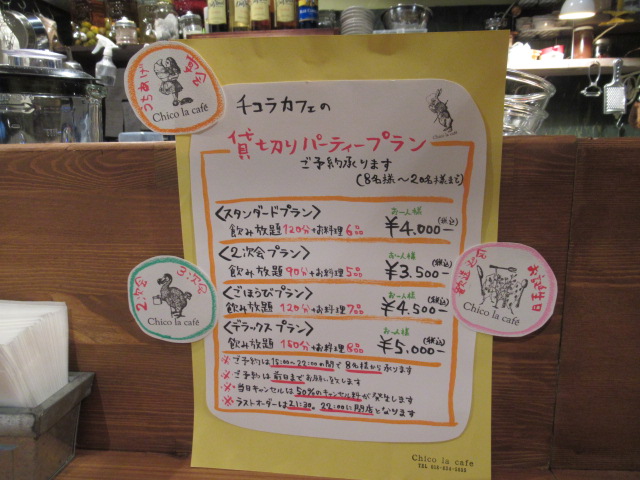 うちあげ
女子会
Chico la café
チコラカフェの
Chico la café
貸切りパーティープラン
ご予約承ります
(8名様〜20名様まで)
<スタンダードプラン>
飲み放題120分+お料理6品
お一人様
¥4.000-
(税込)
<2次会プラン>
飲み放題90分+お料理5品
お一人様
¥3.500-
(税込)
<ごほうびプラン>
飲み放題120分+お料理7品
お一人様
¥4.500-
(税込)
<デラックスプラン>
飲み放題150分+お料理8品
お一人様
¥5.000-
(税込)
※ご予約は15:00〜22:00の間で8名様から承ります
※ご予約は前日までお願い致します
※当日キャンセルは50%のキャンセル料が発生します
※ラストオーダーは21:30。22:00に閉店となります
2次会
3次会
Chico la café
歓送迎会
お誕生日
Chico la café
Chico la cafe